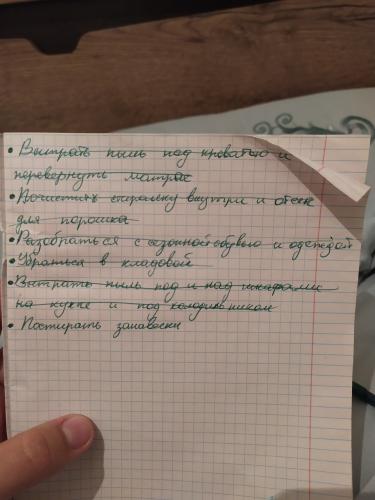 • Вытрать пыль под кроватью и
перевернуть матрас
• Почистить стиралку внутри и отсек
для порошка
• Разобраться с сезонной обувью и одеждой
• Убраться в кладовой
• Вытрать пыль под и над шкафами
на кухне и под холодильником
• Постирать занавески